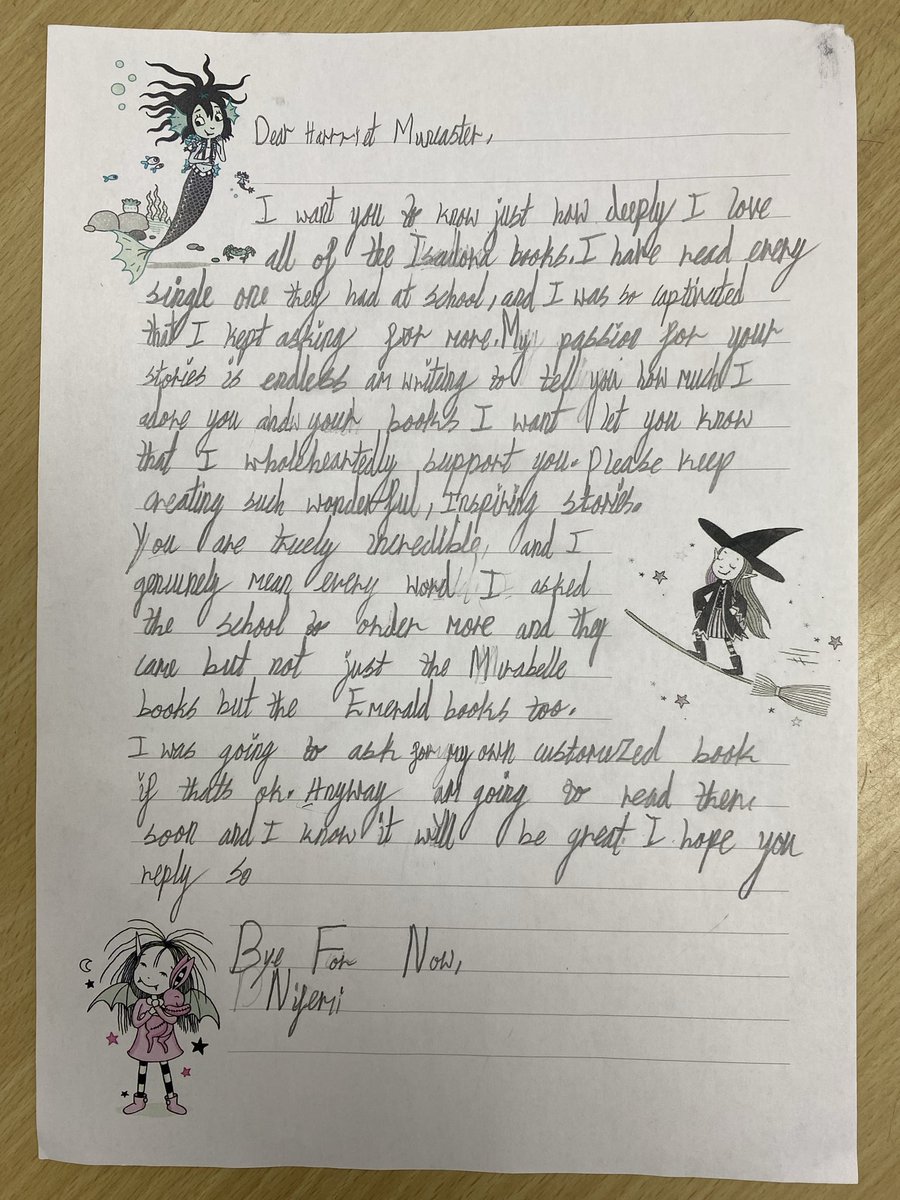 Dear Harrriet Muncaster,
I want you to know just how deeply I love
all of the Isadora books. I have read every
single one they had at school, and I was so captivated
that I kept asking for more. My passion for your
stories is endless am writing to tell you how much I
adore you and your books I want let you know
that I wholeheartedly support you. Please keep
creating such wonderful, Inspiring stories.
You are truely incredible, and I
genuinely mean every word I asked
the school to order more and they
came but not just the Mirabelle
books but the Emerald books too.
I was going to ask for my own customized book
if thats ok. Anyway am going to read them
soon and I know it will be great I hope you
reply so
Bye For Now,
Niferii